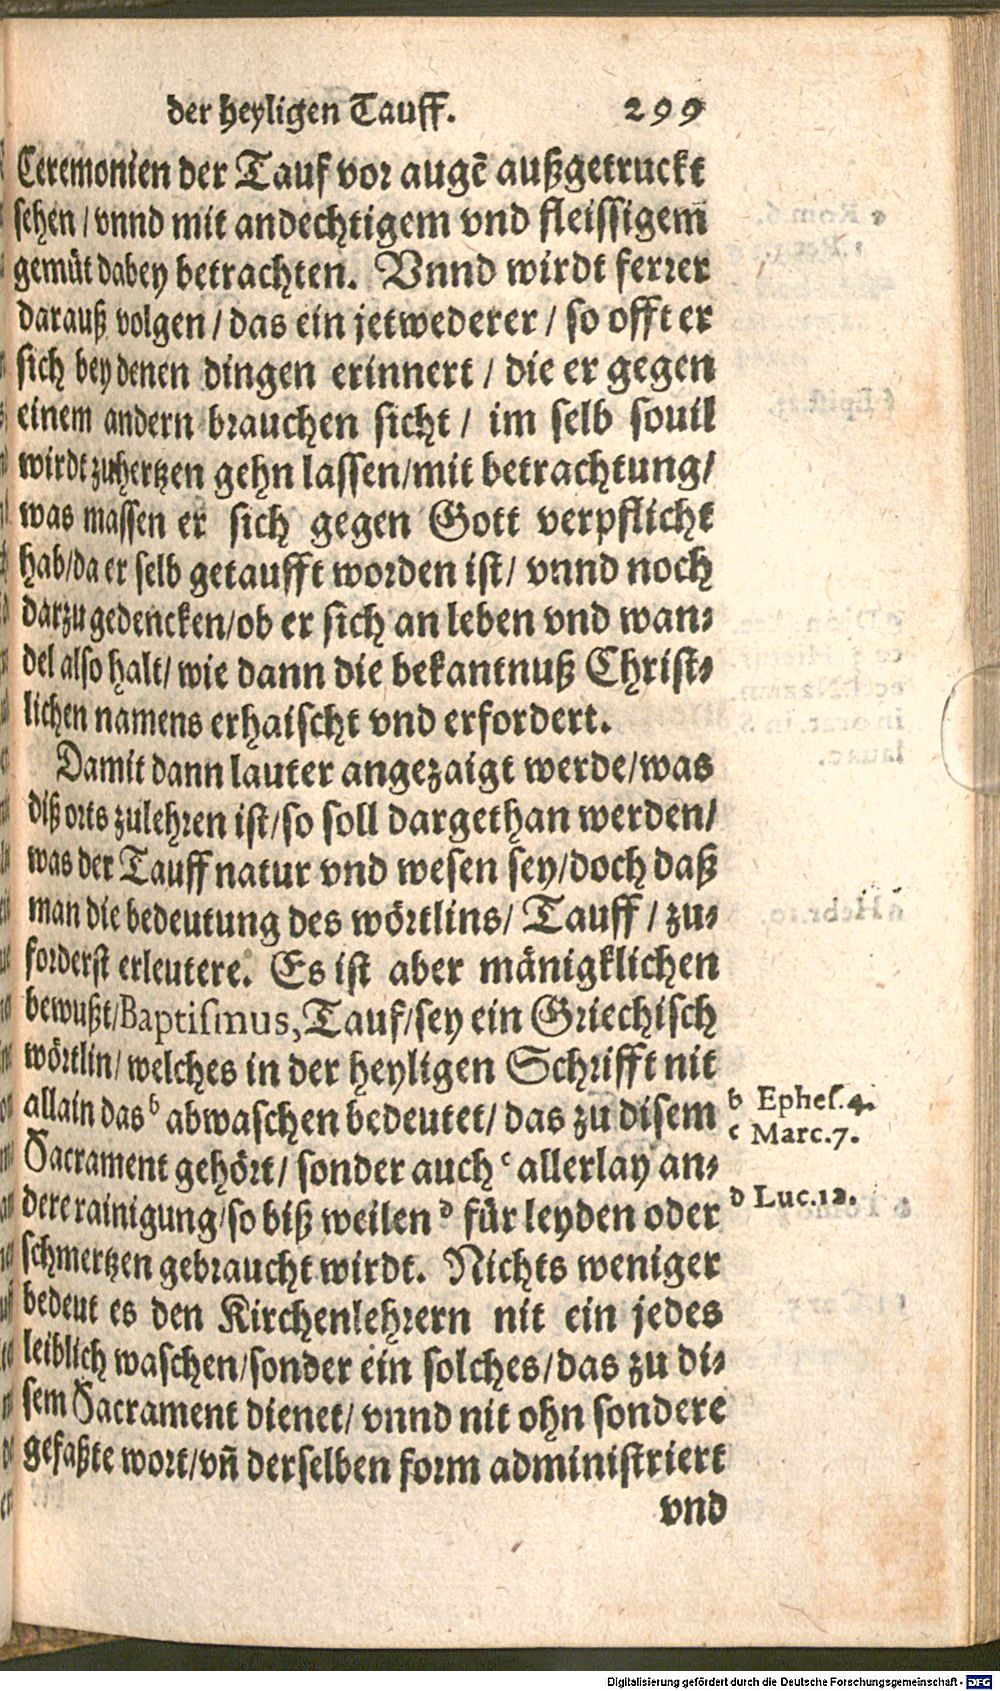 der heyligen Tauff. 299
Ceremonien der Tauf vor augē außgetruckt
sehen / vnnd mit andechtigem vnd fleissigem̄
gemüt dabey betrachten. Vnnd wirdt ferrer
darauß volgen / das ein jetwederer / so offt er
sich bey denen dingen erinnert / die er gegen
einem andern brauchen sicht / im selb souil
wirdt zuhertzen gehn lassen/mit betrachtung/
was massen er sich gegen Gott verpflicht
hab/da er selb getaufft worden ist/ vnnd noch
darzu gedencken/ob er sich an leben vnd wan⸗
del also halt/ wie dann die bekantnuß Christ⸗
lichen namens erhaischt vnd erfordert.
Damit dann lauter angezaigt werde/was
diß orts zulehren ist/so soll dargethan werden/
was der Tauff natur vnd wesen sey/doch daß
man die bedeutung des wörtlins/ Tauff / zu⸗
forderst erleutere. Es ist aber mänigklichen
bewußt/Baptismus, Tauf/sey ein Griechisch
wörtlin/ welches in der heyligen Schrifft nit
allain das ᵇ abwaschen bedeutet/ das zu disem
Sacrament gehört/ sonder auch ᶜ allerlay an⸗
dere rainigung/so biß weilen ᵈ für leyden oder
schmertzen gebraucht wirdt. Nichts weniger
bedeut es den Kirchenlehrern nit ein jedes
leiblich waschen/sonder ein solches/das zu di⸗
sem Sacrament dienet/ vnnd nit ohn sondere
gefaßte wort/vn̄ derselben form administriert
vnd
b Ephes. 4.
c Marc. 7.
d Luc. 12.
Digitalisierung gefördert durch die Deutsche Forschungsgemeinschaft - DFG